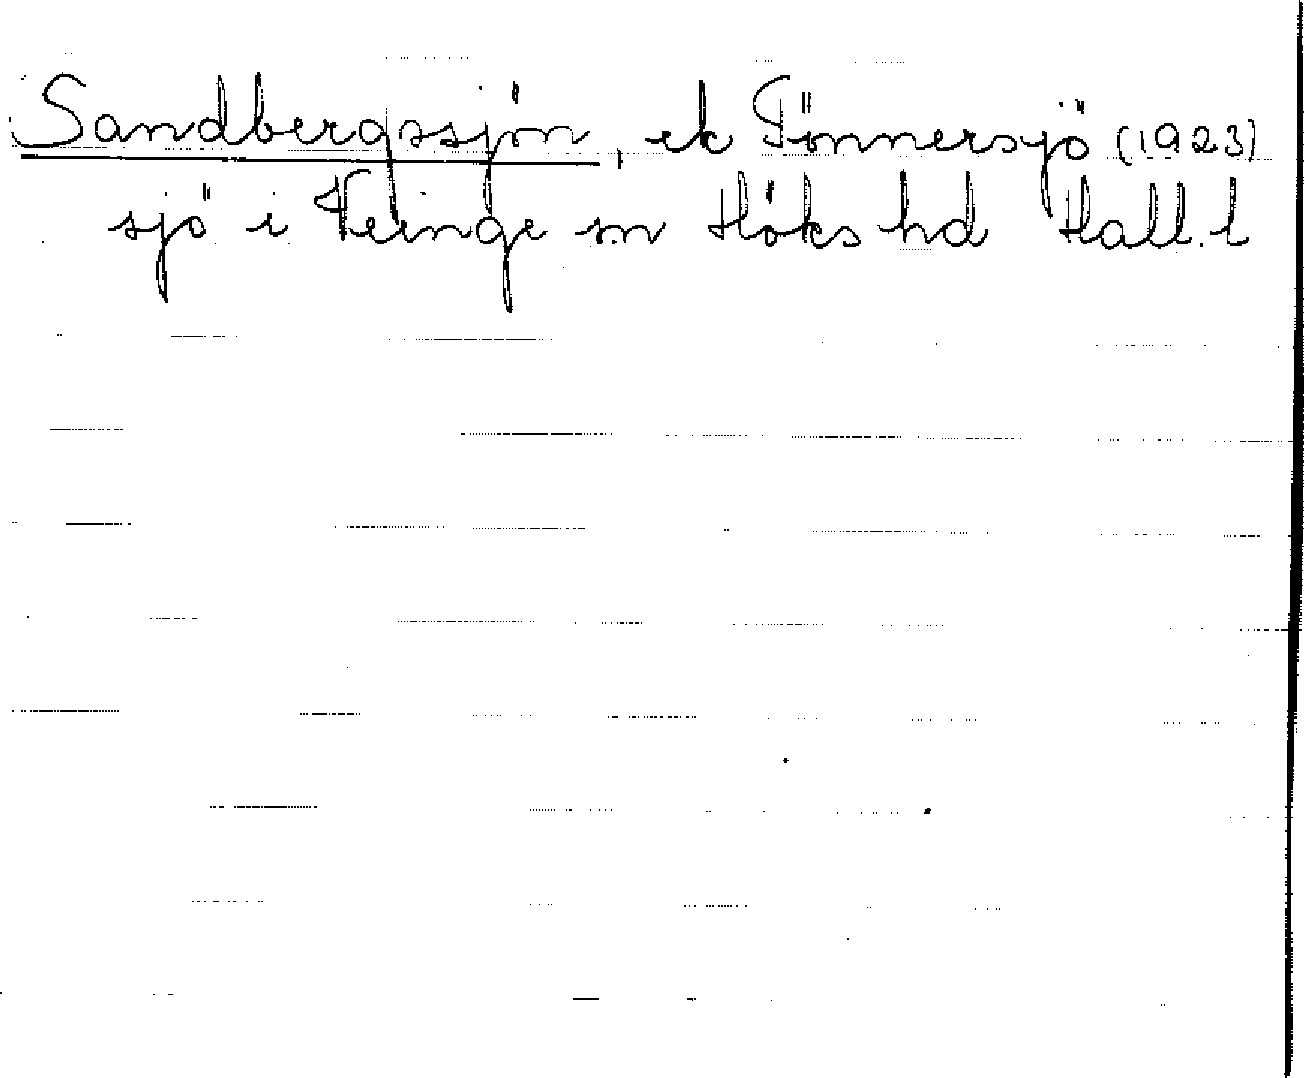 Sandbergssjön, ek Tönnersjö (1923)
sjö i Veinge sn Höks hd Hall. l